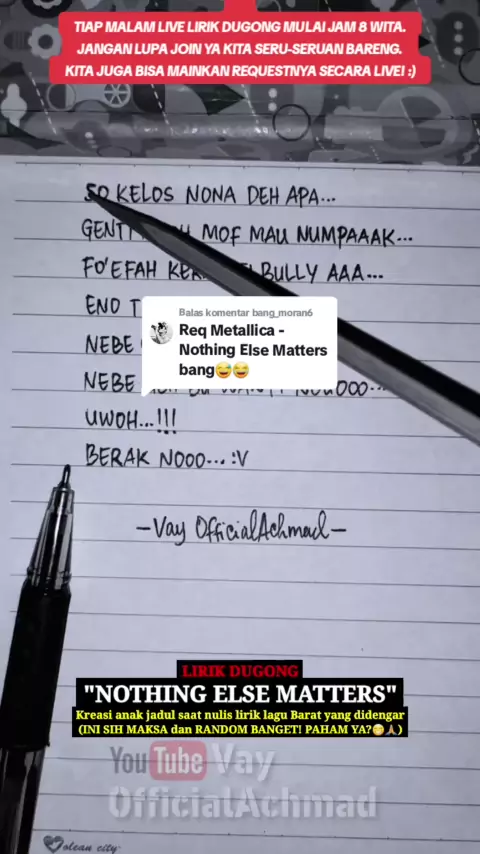 TIAP MALAM LIVE LIRIK DUGONG MULAI JAM 8 WITA.
JANGAN LUPA JOIN YA KITA SERU-SERUAN BARENG.
KITA JUGA BISA MAINKAN REQUESTNYA SECARA LIVE! :)
SO KELOS NONA DEH APA...
MOF MAU NUMPAAAK...
FO'EFAH BULLY AAA...
ENO
NEBE
Balas komentar bang_moran6
Req Metallica -
Nothing Else Matters
bang😅😂
NEBE
UWOH...!!!
BERAK NOOO... :V
-Vay OfficialAchmad-
LIRIK DUGONG
"NOTHING ELSE MATTERS"
Kreasi anak jadul saat nulis lirik lagu Barat yang didengar
(INI SIH MAKSA dan RANDOM BANGET! PAHAM YA?😁🙏)
YouTube Vay
OfficialAchmad
olean city